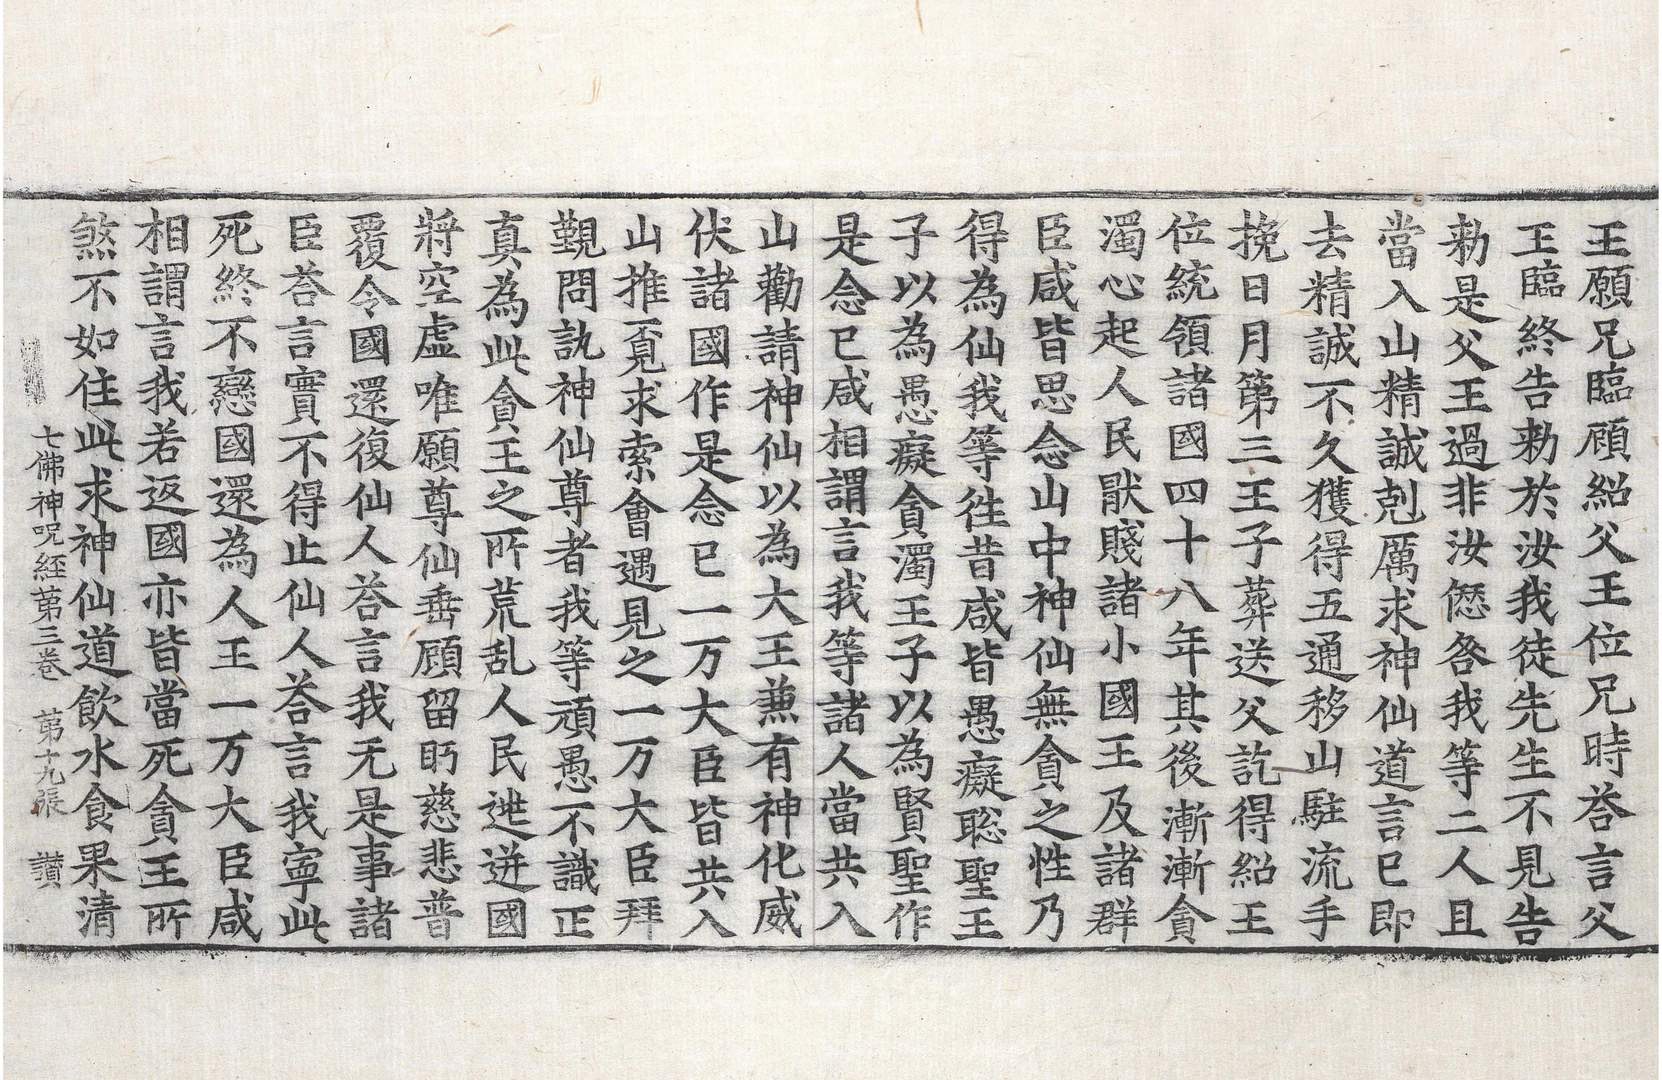 王願兄臨顧紹父王位兄時荅言父
王臨終告勑於汝我徒先生不見告
勑是父王過非汝僽咎我等二人且
當入山精誠剋厲求神仙道言已即
去精誠不久獲得五通移山駐流手
捥日月第三王子葬送父訖得紹王
位統領諸國四十八年其後漸漸貪
濁心起人民猒賤諸小國王及諸群
臣咸皆思念山中神仙無貪之性乃
得為仙我等徃昔咸皆愚癡聡聖王
子以為愚癡貪濁王子以為賢聖作
是念已咸相謂言我等諸人當共入
山勸請神仙以為大王兼有神化威
伏諸國作是念已一万大臣皆共入
山推覔求索會遇見之一万大臣拜
覲問訊神仙尊者我等頑愚不識正
真為此貪王之所荒乱人民迯迸國
將空虛唯願尊仙垂顧留眄慈悲普
覆令國還復仙人荅言我无是事諸
臣荅言實不得止仙人荅言我寧此
死終不戀國還為人王一万大臣咸
相謂言我若返國亦皆當死貪王所
煞不如住此求神仙道飲水食果清
七佛神呪経第三卷 第十九張 讃